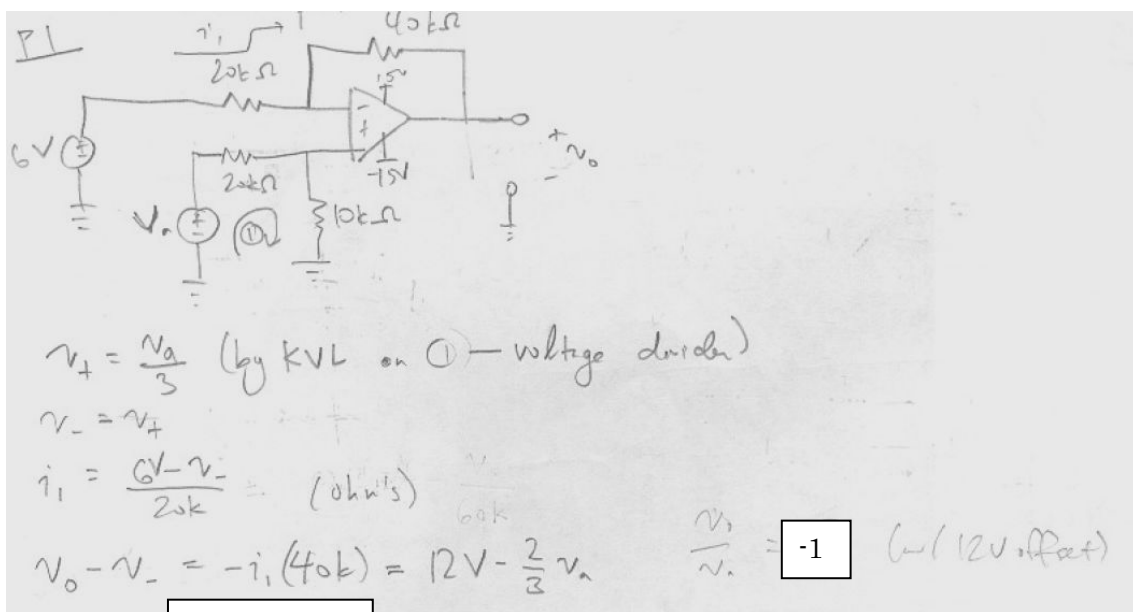 P1
i₁
20kΩ
40kΩ
15V
6V
-
+
-15V
20kΩ
+
v₀
-
Vₐ
①
10kΩ
v₊ = vₐ/3 (by KVL on ① — voltage divider)
v₋ = v₊
i₁ = (6V - v₋)/20k = (ohm's)
60k
v₀ - v₋ = -i₁(40k) = 12V - 2/3 vₐ
v₀/vₐ = -1 (w/ 12V offset)